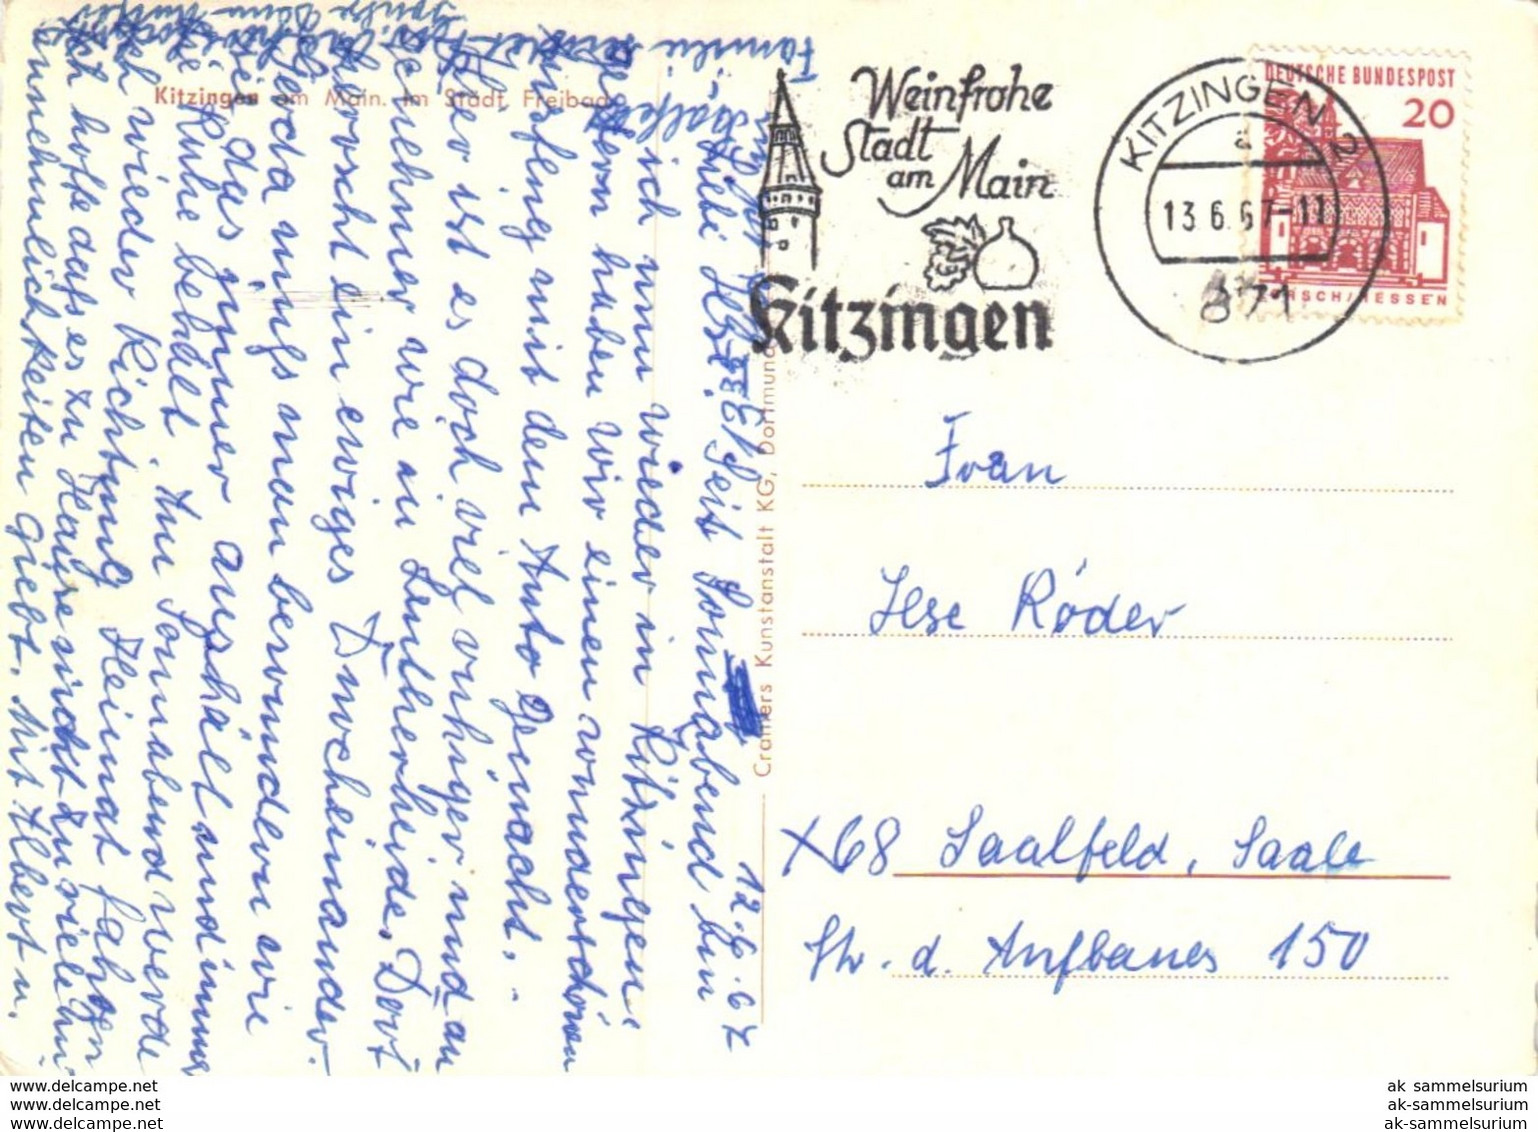 Kitzingen am Main. im Städt. Freibad
Weinfrohe
Stadt
am Main
Kitzingen
KITZINGEN 2
a
13.6.67-11
871
DEUTSCHE BUNDESPOST
20
LORSCH/HESSEN
Cramers Kunstanstalt KG, Dortmund
12.6.67
Liebe Ilse. Seit Sonnabend bin
ich nun wieder in Kitzingen
gestern haben wir einen wunderschönen
Ausflug mit dem Auto gemacht.
Hier ist es doch viel ruhiger und an
genehmer wie in Lentherheide. Dort
herrscht ein ewiges Durcheinander.
Gerda muß man bewundern wie
sie das immer aushält und immer
die Ruhe behält. Am Sonnabend werde
ich wieder Richtung Heimat fahren
Ich hoffe daß es zu Hause nicht zu viele Un
annehmlichkeiten giebt. Mit Albert u.
Familie
Frau
Ilse Röder
X68 Saalfeld, Saale
Str. d. Aufbaues 150
www.delcampe.net
www.delcampe.net
www.delcampe.net
ak_sammelsurium
ak-sammelsurium
ak_sammelsurium